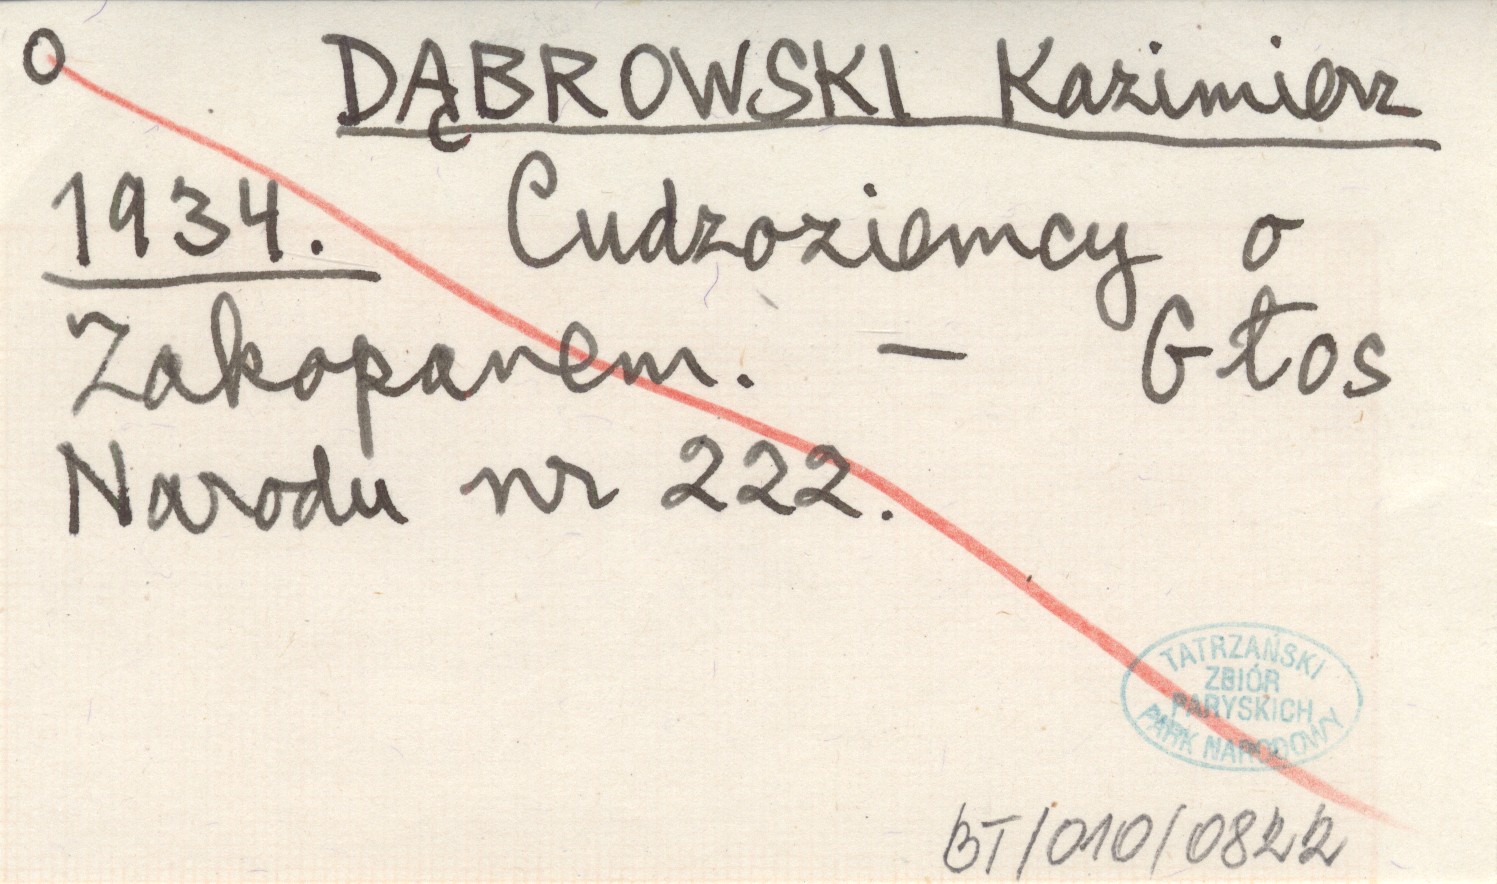 O DĄBROWSKI Kazimierz
1934. Cudzoziemcy o
Zakopanem. — Głos
Narodu nr 222.
TATRZAŃSKI
ZBIÓR
PARYSKICH
PARK NARODOWY
BT/010/0822